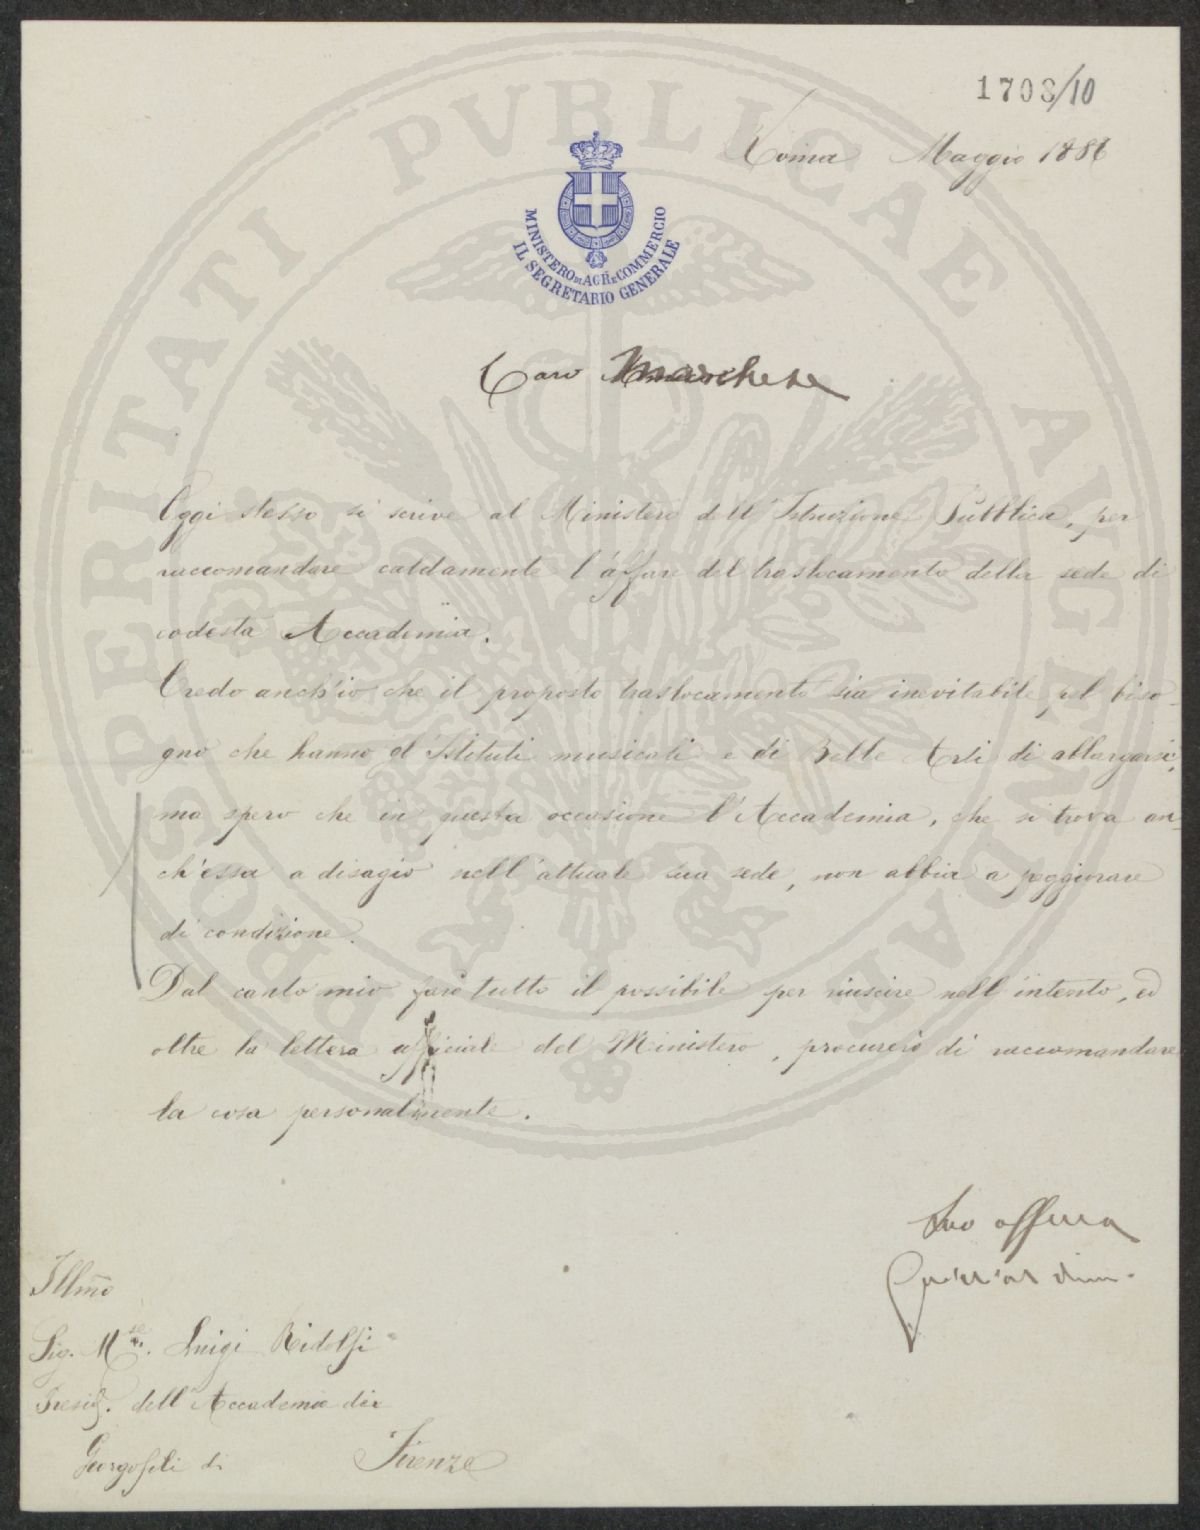 1703/10
Roma Maggio 1886
MINISTERO DI AGR. E COMMERCIO
IL SEGRETARIO GENERALE
Caro Marchese
Oggi stesso si scrive al Ministero dell'Istruzione Pubblica, per
raccomandare caldamente l'affare del traslocamento della sede di
codesta Accademia.
Credo anch'io che il proposto traslocamento sia inevitabile pel biso-
gno che hanno gl'Istituti musicali e di Belle Arti di allargarsi,
ma spero che in questa occasione l'Accademia, che si trova an-
ch'essa a disagio nell'attuale sua sede, non abbia a peggiorare
di condizione.
Dal canto mio farò tutto il possibile per riuscire nell'intento, ed
oltre la lettera officiale del Ministero, procurerò di raccomandare
la cosa personalmente.
Suo
Guicciardini
Illmo
Sig. Mse. Luigi Ridolfi
Presid. dell'Accademia dei
Georgofili di Firenze
PROSPERITATI PVBLICAE AVGENDAE